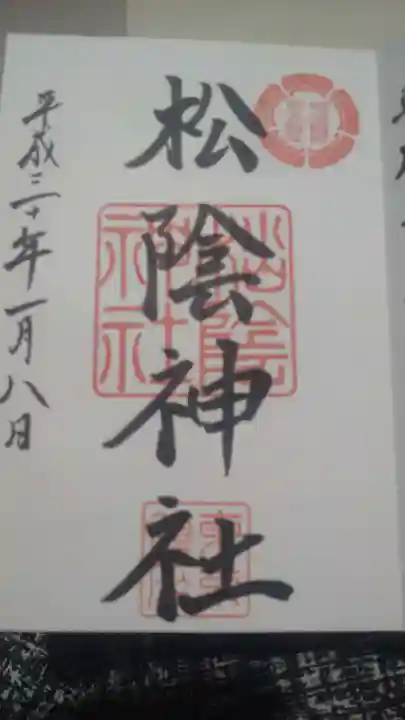 松陰神社
平成三十年一月八日
松陰
神社